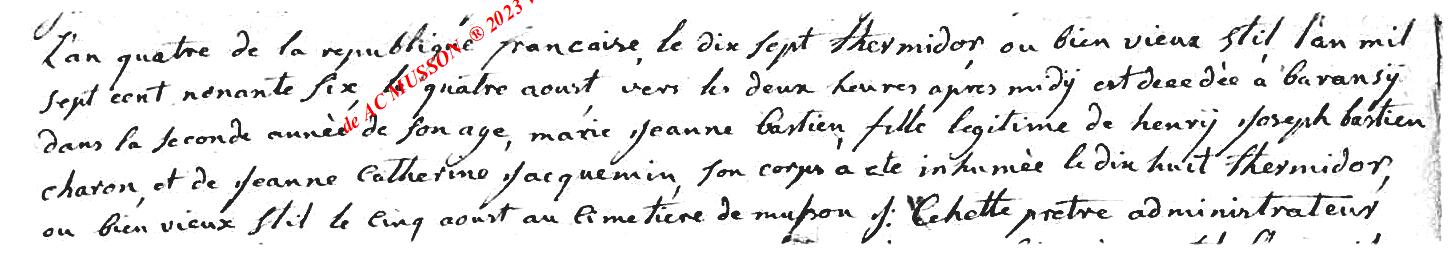 L'an quatre de la republique francaise le dix sept thermidor ou bien vieux stil l'an mil
sept cent nonante six le quatre aoust vers les deux heures après midÿ est decedèe à baransÿ
dans la seconde année de son age, marie Jeanne bastien fille legitime de henrÿ Joseph bastien
charon, et de Jeanne Catherine Jacquemin, son corps à eté inhumèe le dix huit thermidor,
ou bien vieux stil le cinq aoust au cimetiere de musson J: prêtre administrateur
de AC MUSSON ® 2023